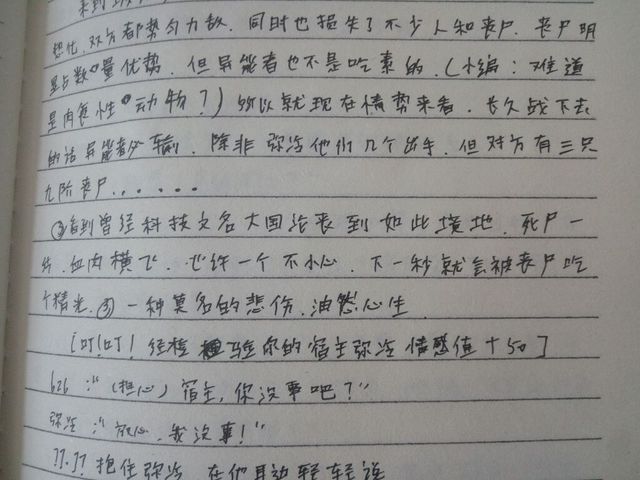 想化,双方都势匀力敌.同时也损失了不少人和丧尸.丧尸明
显占数量优势.但异能者也不是吃素的.(小编:难道
是肉食性动物?)所以就现在情势来看.长久战下去
的话异能者必输.除非弥冷他们几个出手.但对方有三只
九阶丧尸......
③看到曾经科技文名大国沦丧到如此境地.死尸一
片.血肉横飞.也许一个不小心.下一秒就会被丧尸吃
个精光.③一种莫名的悲伤.油然心生
[叮!叮!经检 你的宿主弥冷情感值+50]
626:"(担心)宿主,你没事吧?"
弥冷:"放心.我没事!"
??.??抱住弥冷.在他耳边轻轻说